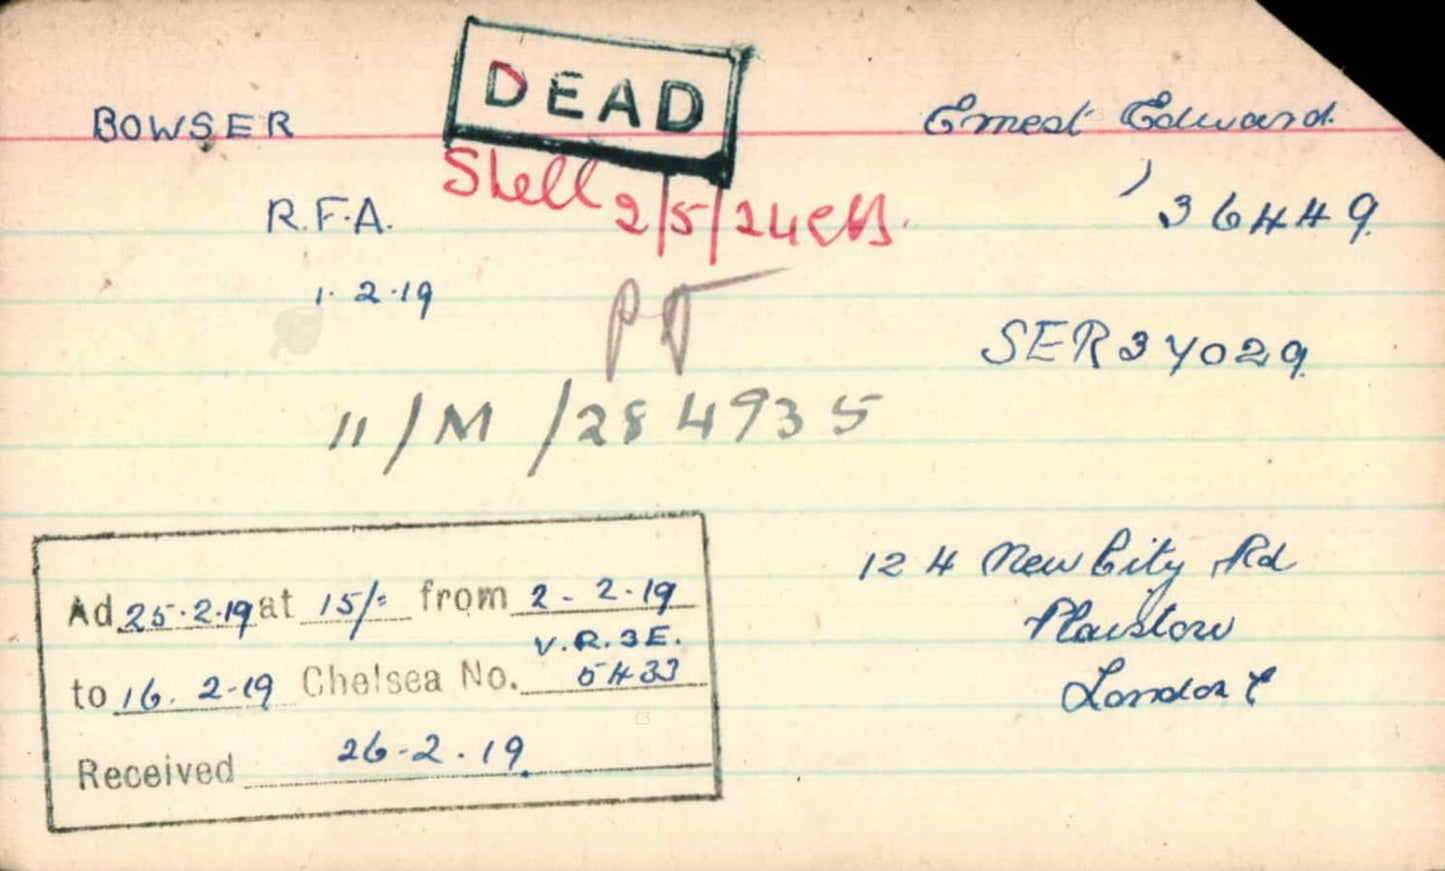 DEAD
BOWSER
Ernest Edward.
Shell 2/5/24
R.F.A.
36449.
1.2.19
SER 37029
11/M/284935
124 New City Rd
Plaistow
London E
Ad 25.2.19 at 15/= from 2-2.19
V.R.3E.
to 16.2-19 Chelsea No. 5433
Received 26-2.19.